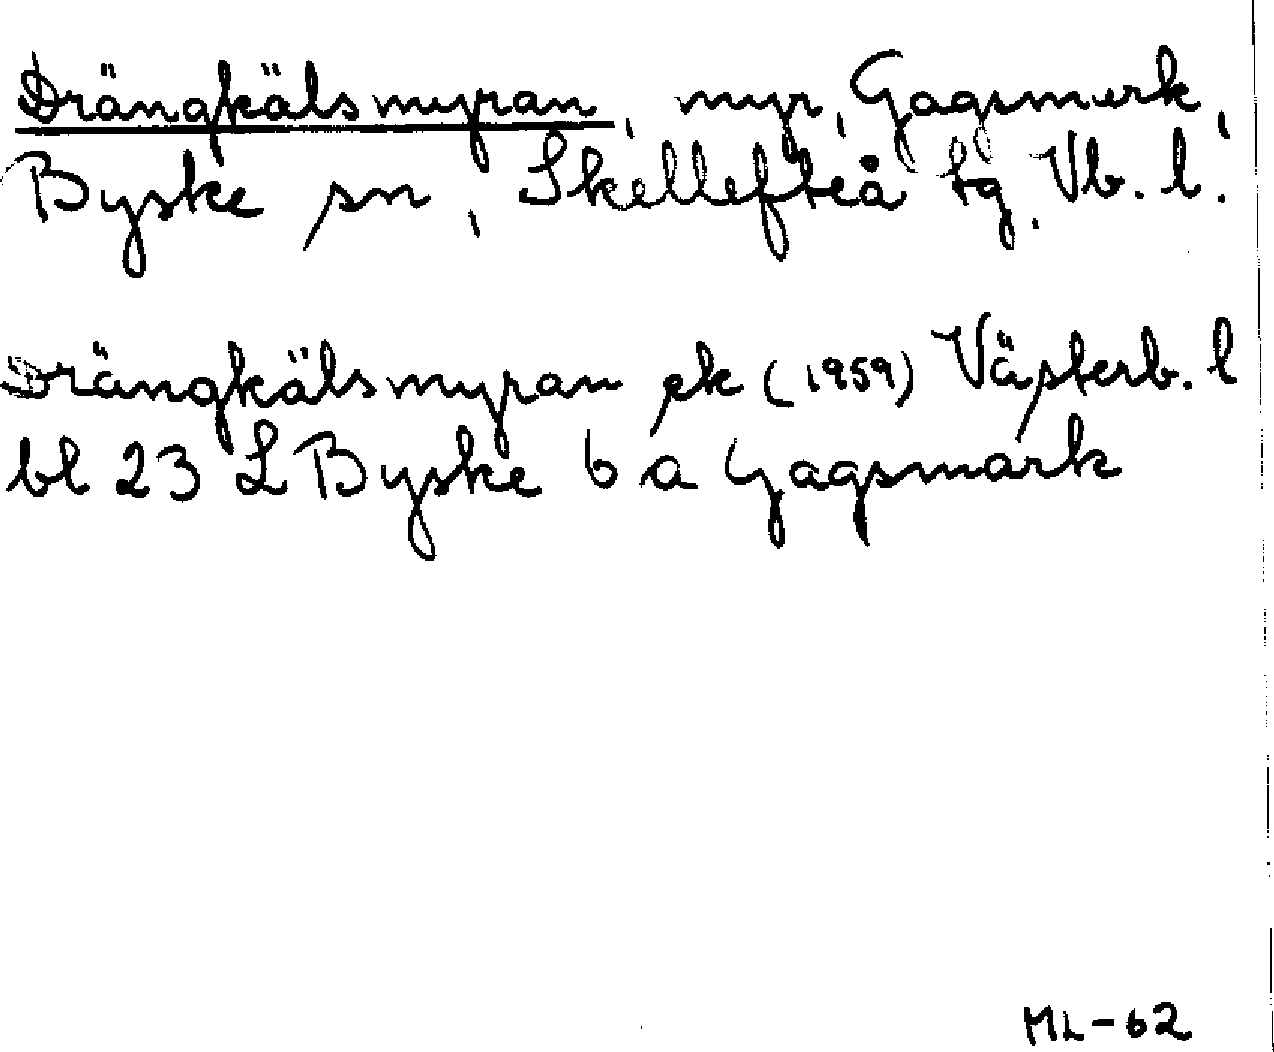 Drängkälsmyran, myr, Gagsmark,
Byske sn, Skellefteå tg. Vb. l.
Drängkälsmyran ek (1959) Västerb. l
bl 23 L Byske 6 a Gagsmark
ML-62